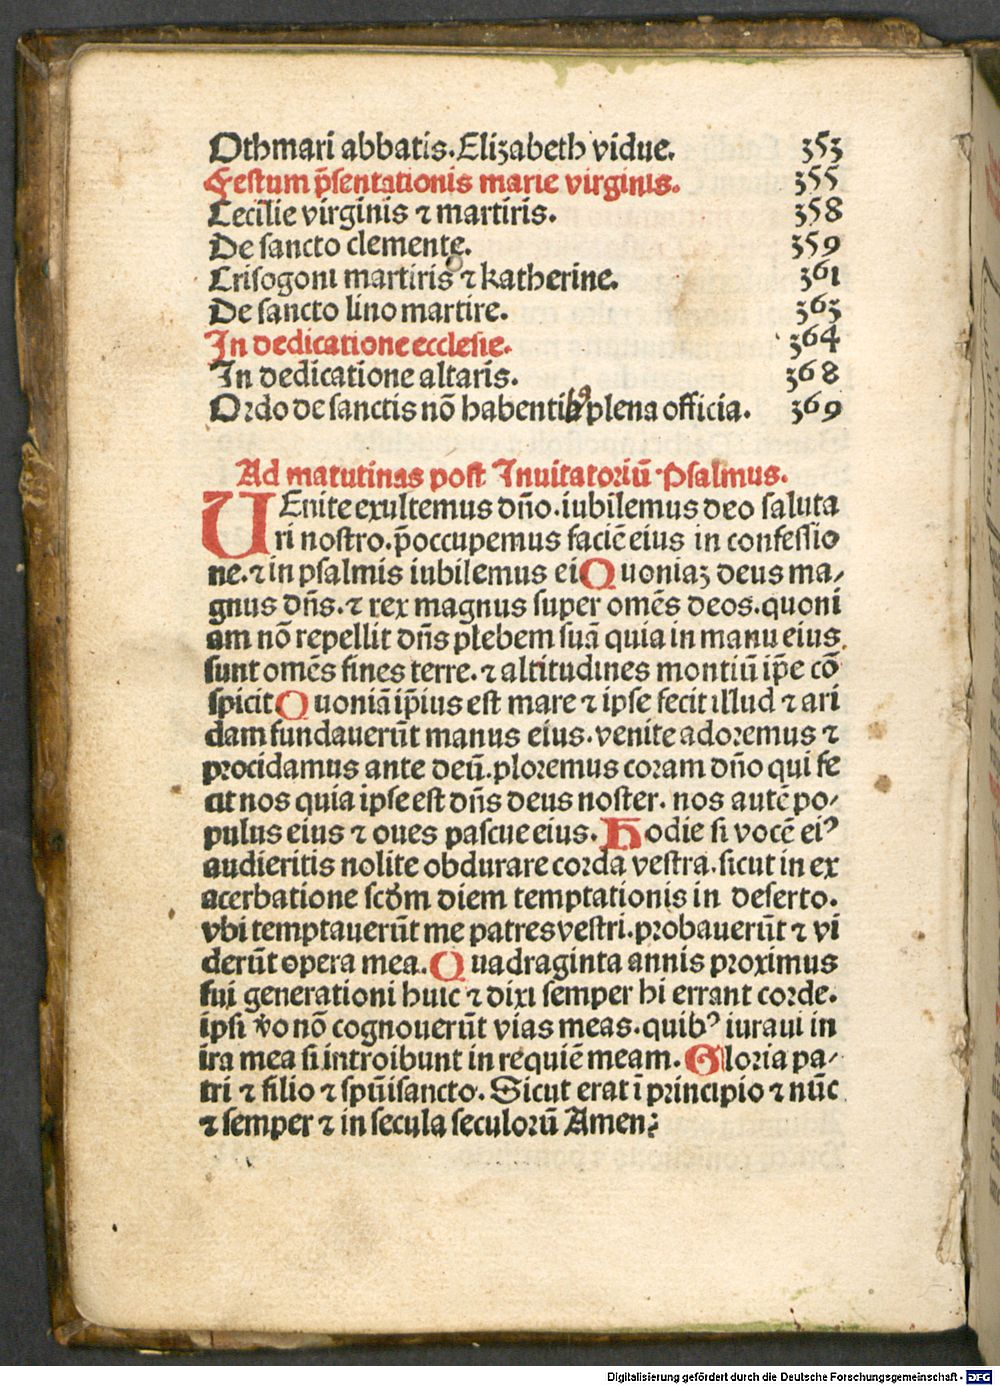 Othmari abbatis. Elizabeth vidue. 353
Festum p̄sentationis marie virginis. 355
Cecilie virginis ⁊ martiris. 358
De sancto clemente. 359
Crisogoni martiris ⁊ katherine. 361
De sancto lino martire. 363
In dedicatione ecclesie. 364
In dedicatione altaris. 368
Ordo de sanctis nō habentibꝰ plena officia. 369
Ad matutinas post Inuitatoriū. Psalmus.
VEnite exultemus dn̄o. iubilemus deo saluta
ri nostro. p̄occupemus faciē eius in confessio
ne. ⁊ in psalmis iubilemus ei Quoniaꝫ deus ma⸗
gnus dn̄s. ⁊ rex magnus super omēs deos. quoni
am nō repellit dn̄s plebem suā quia in manu eius
sunt omēs fines terre. ⁊ altitudines montiū ip̄e cō
spicit Quoniā ip̄ius est mare ⁊ ipse fecit illud ⁊ ari
dam fundauerūt manus eius. venite adoremus ⁊
procidamus ante deū. ploremus coram dn̄o qui fe
cit nos quia ipse est dn̄s deus noster. nos autē po⸗
pulus eius ⁊ oues pascue eius. Hodie si vocē eiꝰ
audieritis nolite obdurare corda vestra. sicut in ex
acerbatione scd̄m diem temptationis in deserto.
vbi temptauerūt me patres vestri. probauerūt ⁊ vi
derūt opera mea. Quadraginta annis proximus
fui generationi huic ⁊ dixi semper hi errant corde.
ipsi v̄o nō cognouerūt vias meas. quibꝰ iuraui in
ira mea si introibunt in requiē meam. Gloria pa⸗
tri ⁊ filio ⁊ spūisancto. Sicut erat ī principio ⁊ nūc
⁊ semper ⁊ in secula seculorū Amen.
Digitalisierung gefördert durch die Deutsche Forschungsgemeinschaft - DFG